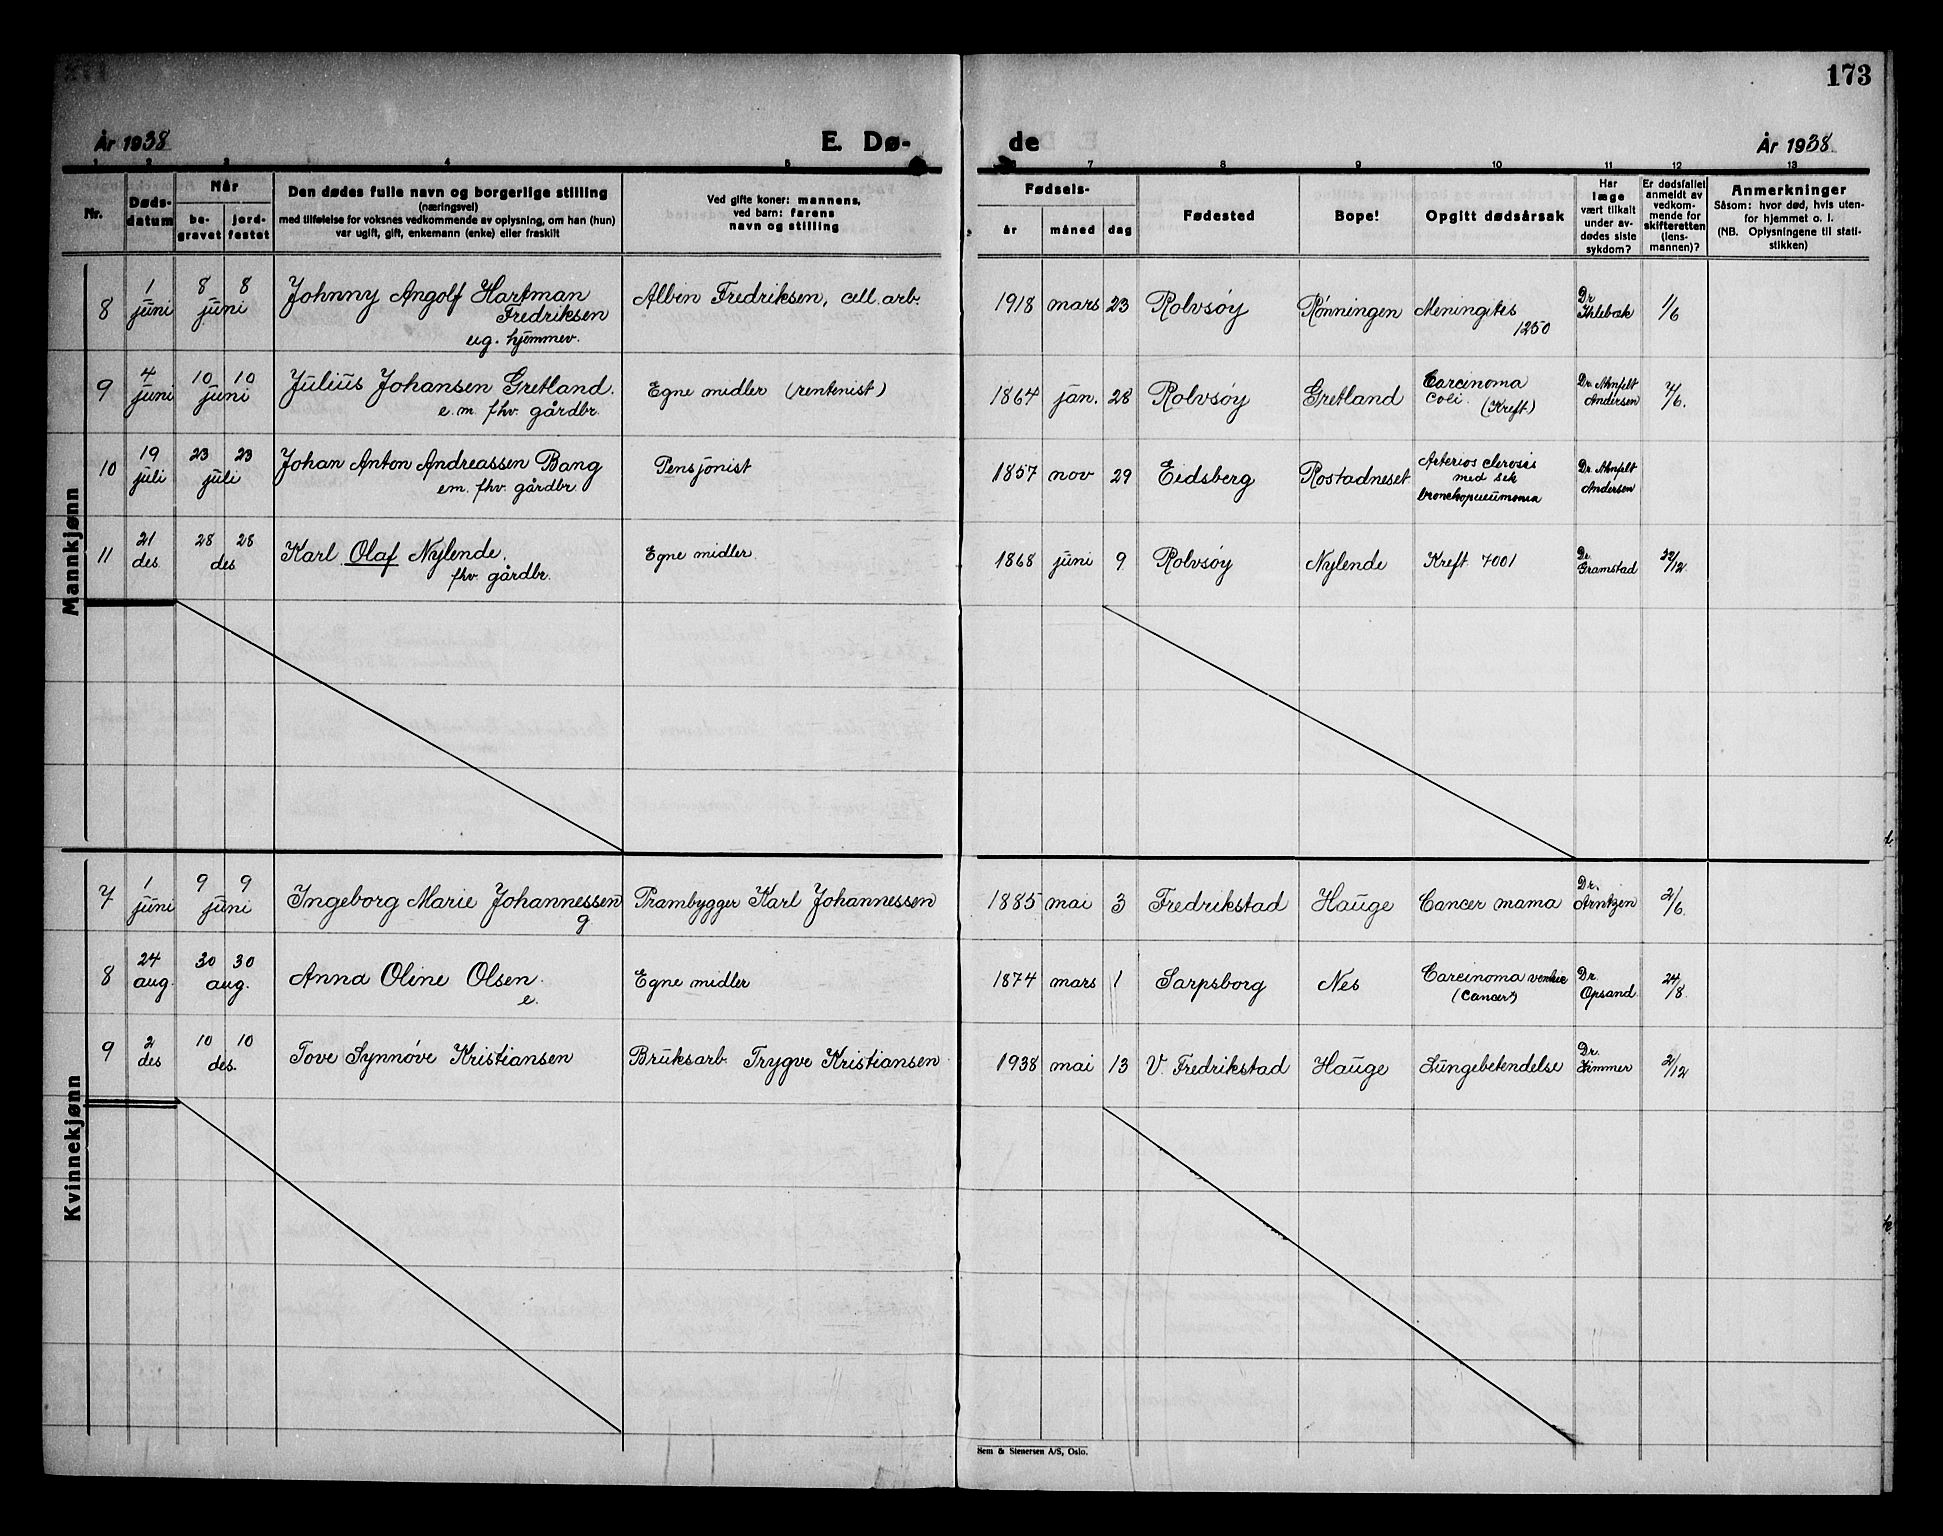 173
År 1938
E. Dø-
de
År 1938.
1 2 3 4 5
6 7 8 9 10 11 12 13
Nr.
Døds-
datum
Når
be-
gravet
jord-
festet
Den dødes fulle navn og borgerlige stilling
(næringsvei)
med tilføielse for voksnes vedkommende av oplysning, om han (hun)
var ugift, gift, enkemann (enke) eller fraskilt
Ved gifte koner: mannens,
ved barn: farens
navn og stilling
Fødsels-
år måned dag
Fødested
Bopel
Opgitt dødsårsak
Har
læge
vært tilkalt
under av-
dødes siste
sykdom?
Er dødsfallet
anmeldt av
vedkom-
mende for
skifteretten
(lens-
mannen)?
Anmerkninger
Såsom: hvor død, hvis uten-
for hjemmet o. l.
(NB. Oplysningene til stati-
stikken)
Mannkjønn
8 1 juni 8 8 juni Johnny Angolf Hartman
Fredriksen
ug. hjemmev.
Albin Fredriksen, cell. arb.
1918 mars 23 Rolvsøy Rønningen Meningites
1250
Dr
Ihlebæk
1/6
9 4 juni 10 10 juni Julius Johansen Gretland.
e. m. fhv. gårdbr.
Egne midler (rentenist)
1864 jan. 28 Rolvsøy Gretland Carcinoma
Coli. (Kreft)
Dr. Ahnfelt
Andersen
7/6.
10 19 juli 23 23 juli Johan Anton Andreassen Bang
em. fhv. gårdbr.
Pensjonist
1857 nov 29 Eidsberg Rostadneset Arterios clerosis
med sek
bronchopneumonia
Dr. Ahnfelt
Andersen
11 21 des 28 28 des Karl Olaf Nylende.
fhv. gårdbr.
Egne midler.
1868 juni 9 Rolvsøy Nylende Kreft 7001
Dr.
Gramstad
22/12.
Kvinnekjønn
7 1 juni 9 9 juni Ingeborg Marie Johannessen
g.
Prambygger Karl Johannessen
1885 mai 3 Fredrikstad Hauge Cancer mama
Dr.
Arntzen
2/6.
8 24 aug. 30 30 aug. Anna Oline Olsen.
e.
Egne midler
1874 mars 1 Sarpsborg Nes Carcinoma
(Cancer)
Dr.
Opsand.
24/8.
9 2 des 10 10 des. Tove Synnøve Kristiansen
Bruksarb. Trygve Kristiansen
1938 mai 13 V. Fredrikstad Hauge Lungebetendelse
Dr.
Zimmer
2/12
Sem & Stenersen A/S, Oslo.